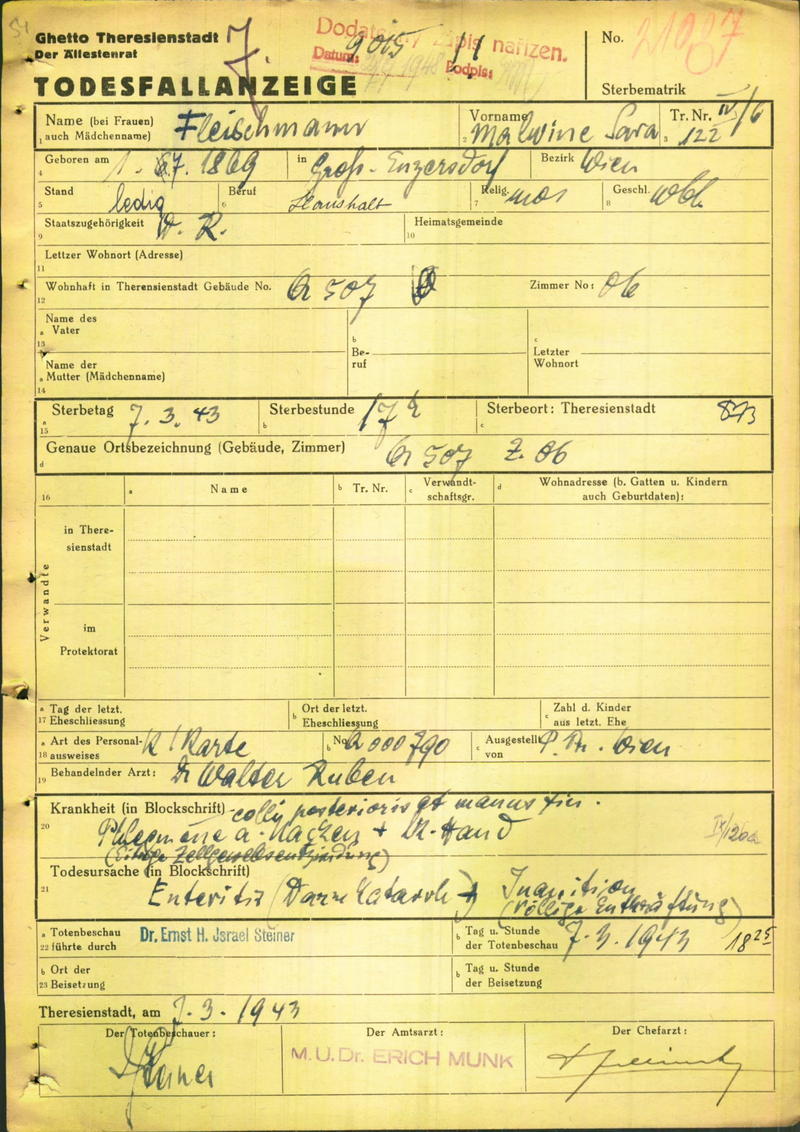 Ghetto Theresienstadt
Der Ältestenrat
TODESFALLANZEIGE
9015
Datum:
Podpis:
No.
Sterbematrik
1 Name (bei Frauen) auch Mädchenname) Fleischmann
2 Vorname Malwine Sara
3 Tr. Nr. IV/6 122
4 Geboren am 1. 7. 1869 in Groß-Enzersdorf Bezirk Wien
5 Stand ledig
6 Beruf Haushalt
7 Relig. mos
8 Geschl. wbl.
9 Staatszugehörigkeit D. R.
10 Heimatsgemeinde
11 Lettzer Wohnort (Adresse)
12 Wohnhaft in Therensienstadt Gebäude No. Q 507 Zimmer No: 06
13 a Name des Vater
b Beruf
c Letzter Wohnort
14 a Name der Mutter (Mädchenname)
15 a Sterbetag 7. 3. 43
b Sterbestunde 17 h
c Sterbeort: Theresienstadt 873
d Genaue Ortsbezeichnung (Gebäude, Zimmer) Q 507 Z. 06
16 a Name b Tr. Nr. c Verwandtschaftsgr. d Wohnadresse (b. Gatten u. Kindern auch Geburtdaten):
Verwandte
in Theresienstadt
im Protektorat
17 a Tag der letzt. Eheschliessung
b Ort der letzt. Eheschliessung
c Zahl d. Kinder aus letzt. Ehe
18 a Art des Personalausweises K'Karte
b No. 000790
c Ausgestellt von P. Dr. Wien
19 Behandelnder Arzt: Dr Walter Ruben
20 Krankheit (in Blockschrift) colli posterioris et manus sin.
Phlegmone a. Nacken + Hand
(Eitrige Zellgewebsentzündung)
21 Todesursache (in Blockschrift)
Enteritis (Darmkatarrh) + Inanition
(völlige Entkräftung)
22 a Totenbeschau führte durch Dr. Ernst H. Jsrael Steiner
b Tag u. Stunde der Totenbeschau 7. 3. 1943 18 25
23 b Ort der Beisetzung
b Tag u. Stunde der Beisetzung
Theresienstadt, am 7. 3. 1943
Der Totenbeschauer:
Steiner
Der Amtsarzt:
M.U.Dr. ERICH MUNK
Der Chefarzt: